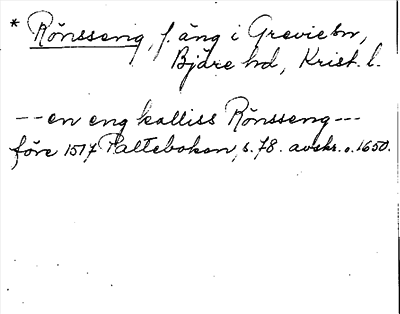 * Rönsseng, f. äng i Greviebn,
Bjäre hd, Krist. l.
-- en eng kalliss Rönsseng ---
före 1517 Paltebokan, s. 78. avskr. o. 1650.